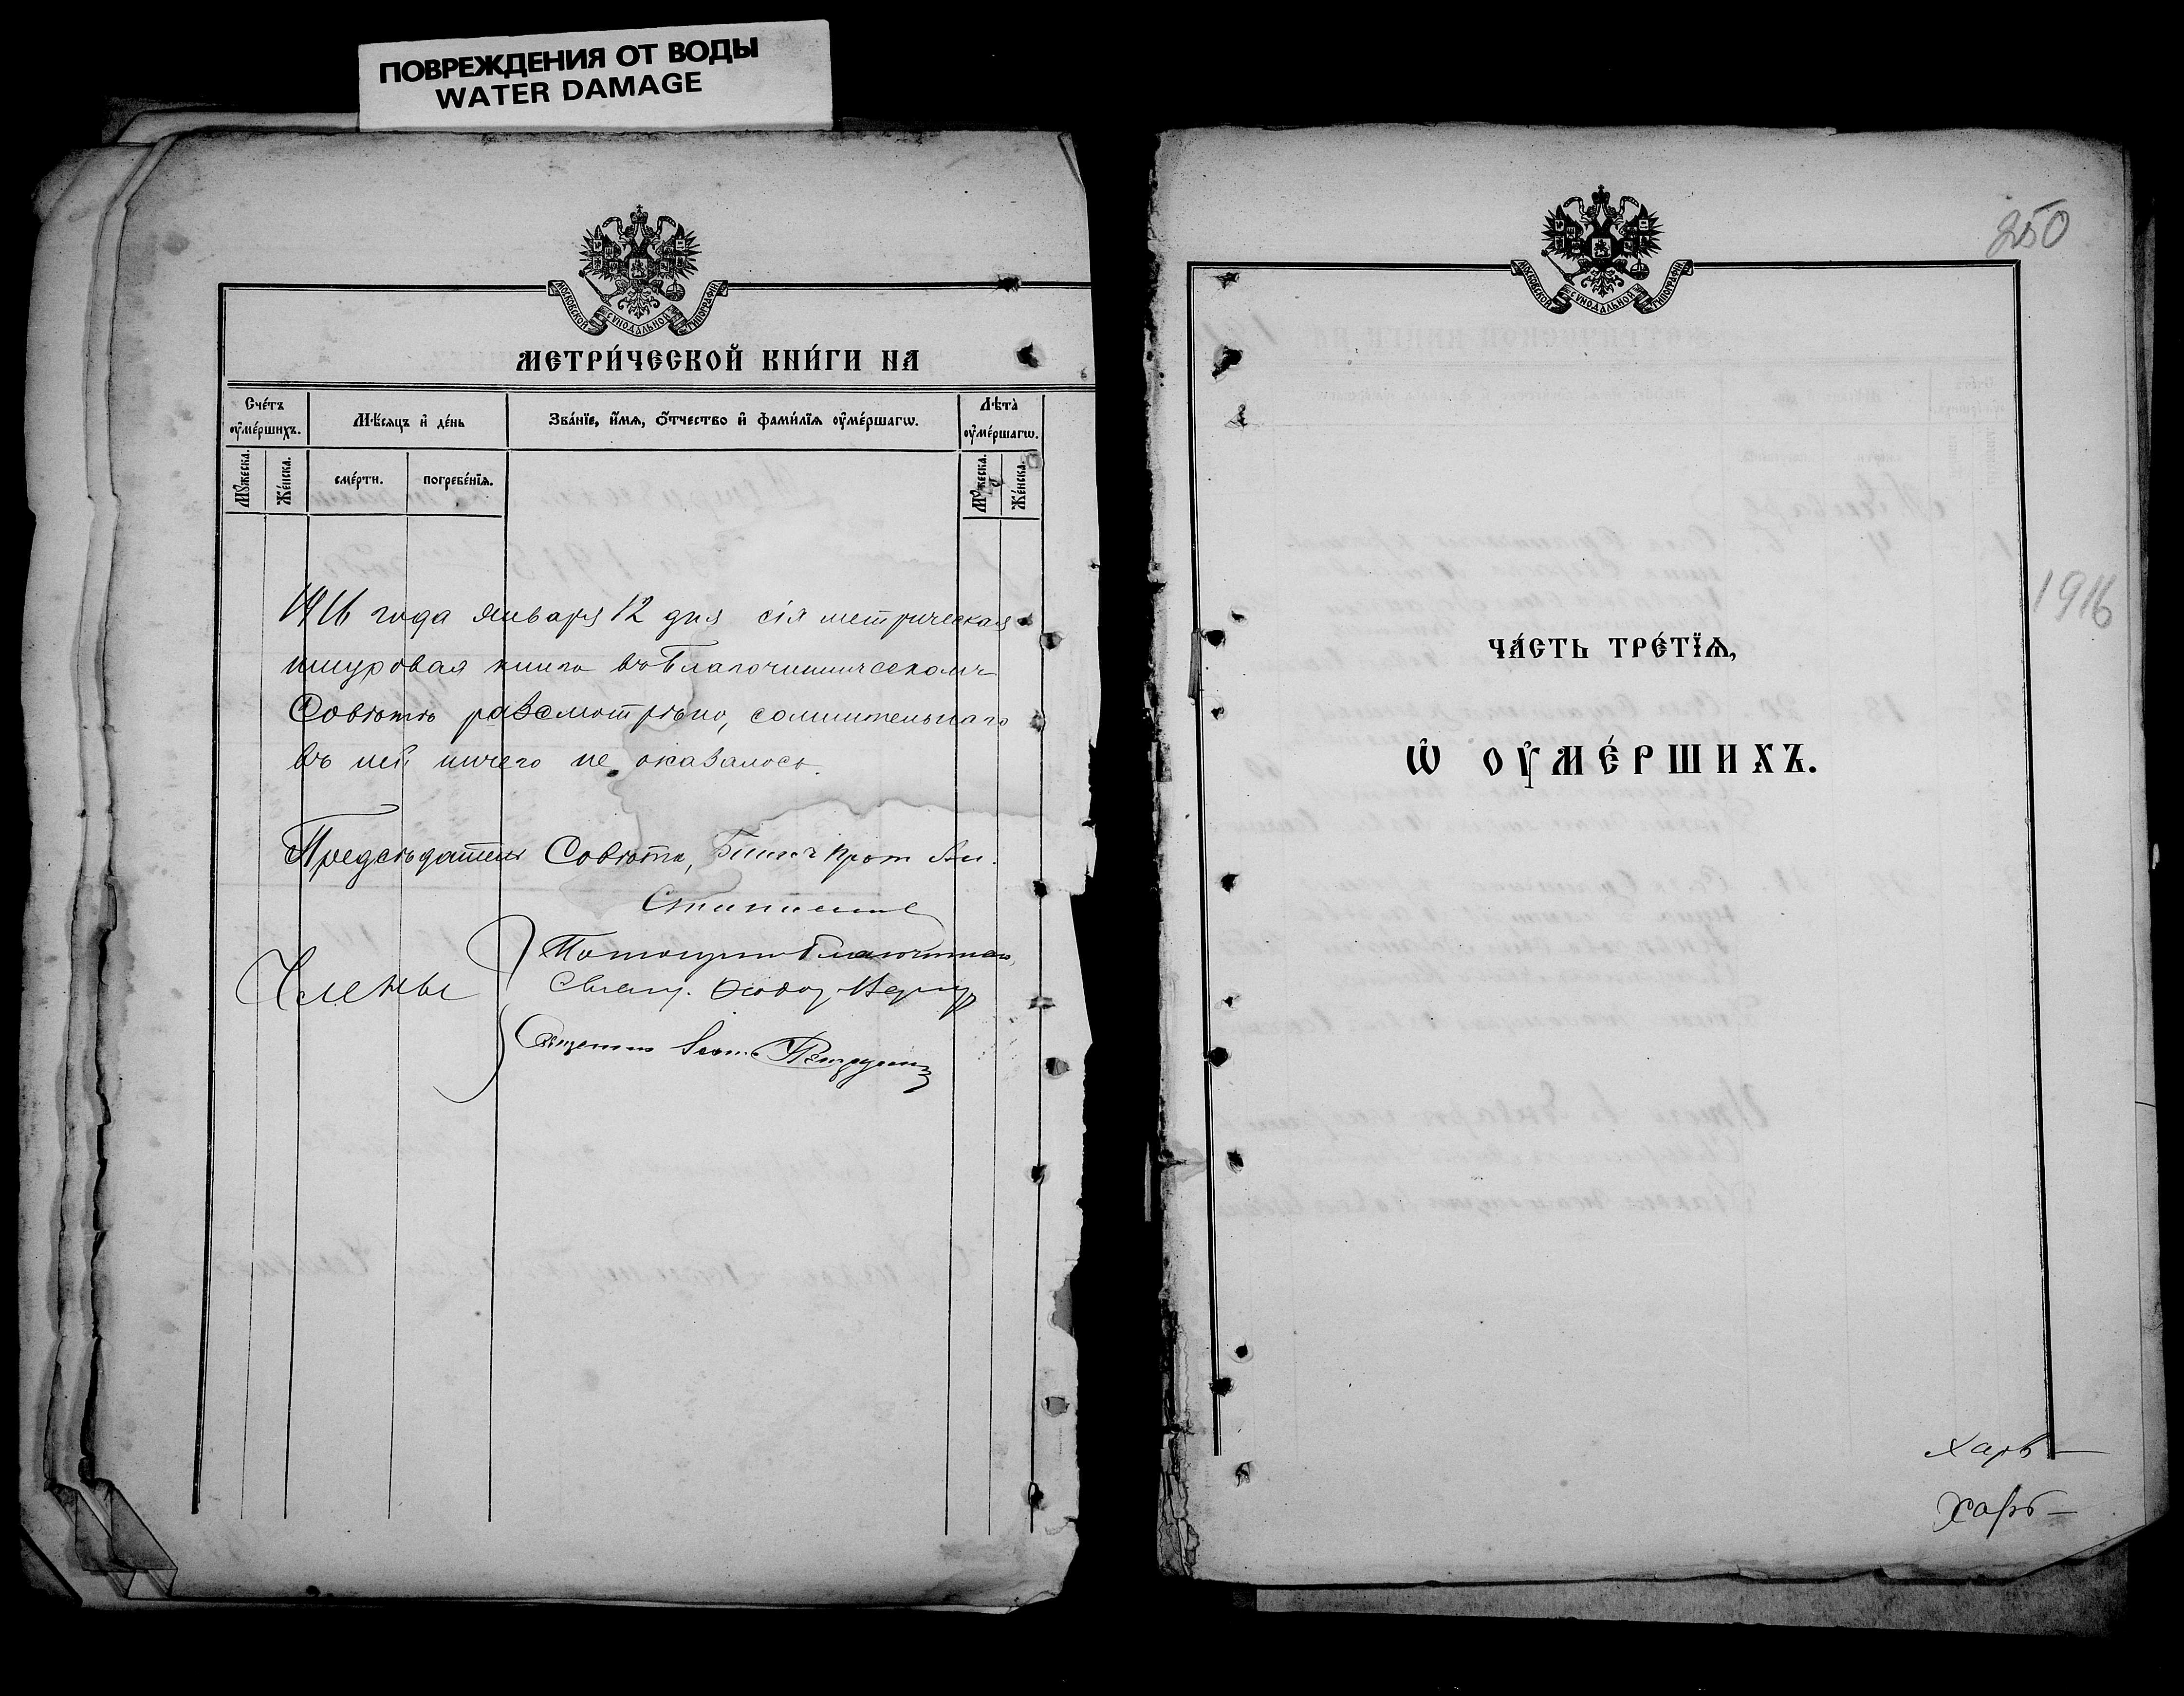 ПОВРЕЖДЕНИЯ ОТ ВОДЫ
WATER DAMAGE
МОСКОВСКОЙ СѴНОДАЛЬНОЙ ТИПОГРАФІИ
МЕТРИ́ЧЕСКОЙ КНИ́ГИ НА
Сче́тъ оу҆ме́ршихъ.
Мѣ́сяцъ и҆ де́нь
Зва́нїе, и҆́мѧ, ѻ҆́тчество и҆ фами́лїѧ оу҆ме́ршагѡ.
Лѣ̀та оу҆ме́ршагѡ.
Мꙋ́жеска.
Же́нска.
сме́рти.
погребе́нїѧ.
Мꙋ́жеска.
Же́нска.
1916 года Января 12 дня сія метрическая
шнуровая книга въ Благочинническомъ
Совѣтѣ разсмотрѣно, сомнительнаго
въ ней ничего не оказалось.
Предсѣдатель Совѣта, прот.
Члены
Помощникъ Благочиннаго,
Свящ.
Священникъ
250
МОСКОВСКОЙ СѴНОДАЛЬНОЙ ТИПОГРАФІИ
1916
ЧА́СТЬ ТРЕ́ТЇѦ,
Ѡ҆ ОУ҆МЕ́РШИХЪ.
Харь—
Харь—